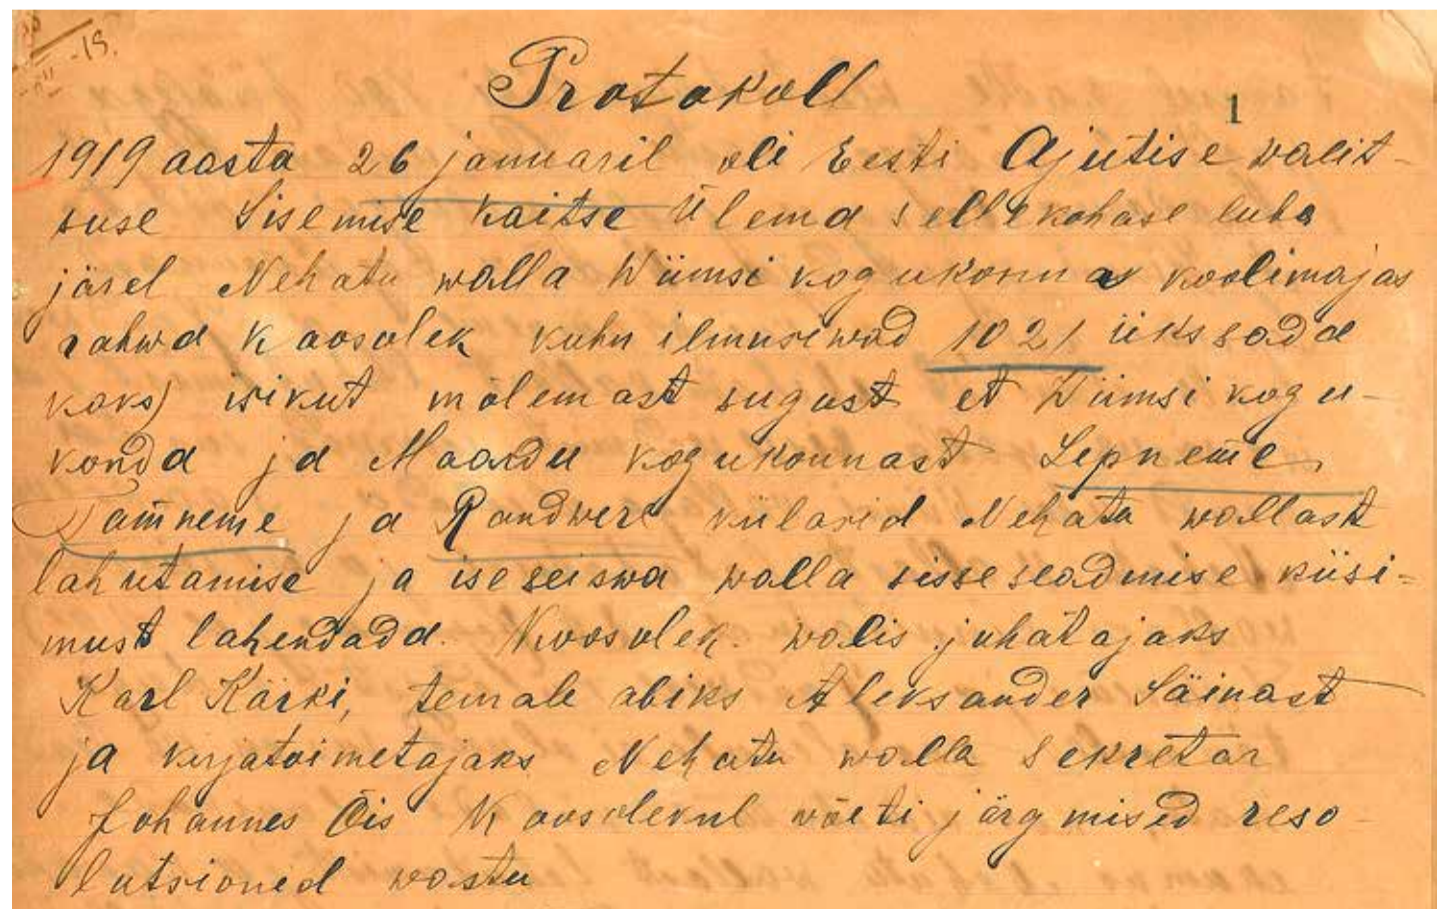 -19.
Protokoll
1
1919 aasta 26 januaril oli Eesti Ajutise walit-
suse Sisemise kaitse Ülema sellekohase luba
järel Nehatu walla Wiimsi kogukonnas koolimajas
rahwa koosolek kuhu ilmusiwad 102( ükssada
kaks) isikut mõlemast sugust et Wiimsi kogu-
konda ja Maardu kogukonnast Lepneeme
Tammneme ja Randwere külasid Nehatu wallast
lahutamise ja iseseiswa walla sisseseadmise küsi-
must lahendada. Koosolek walis juhatajaks
Karl Kärki, temale abiks Aleksander Säinast
ja kirjatoimetajaks Nehatu walla sekretär
Johannes Õis Koosolekul wõeti järgmised reso
lutsioned wastu